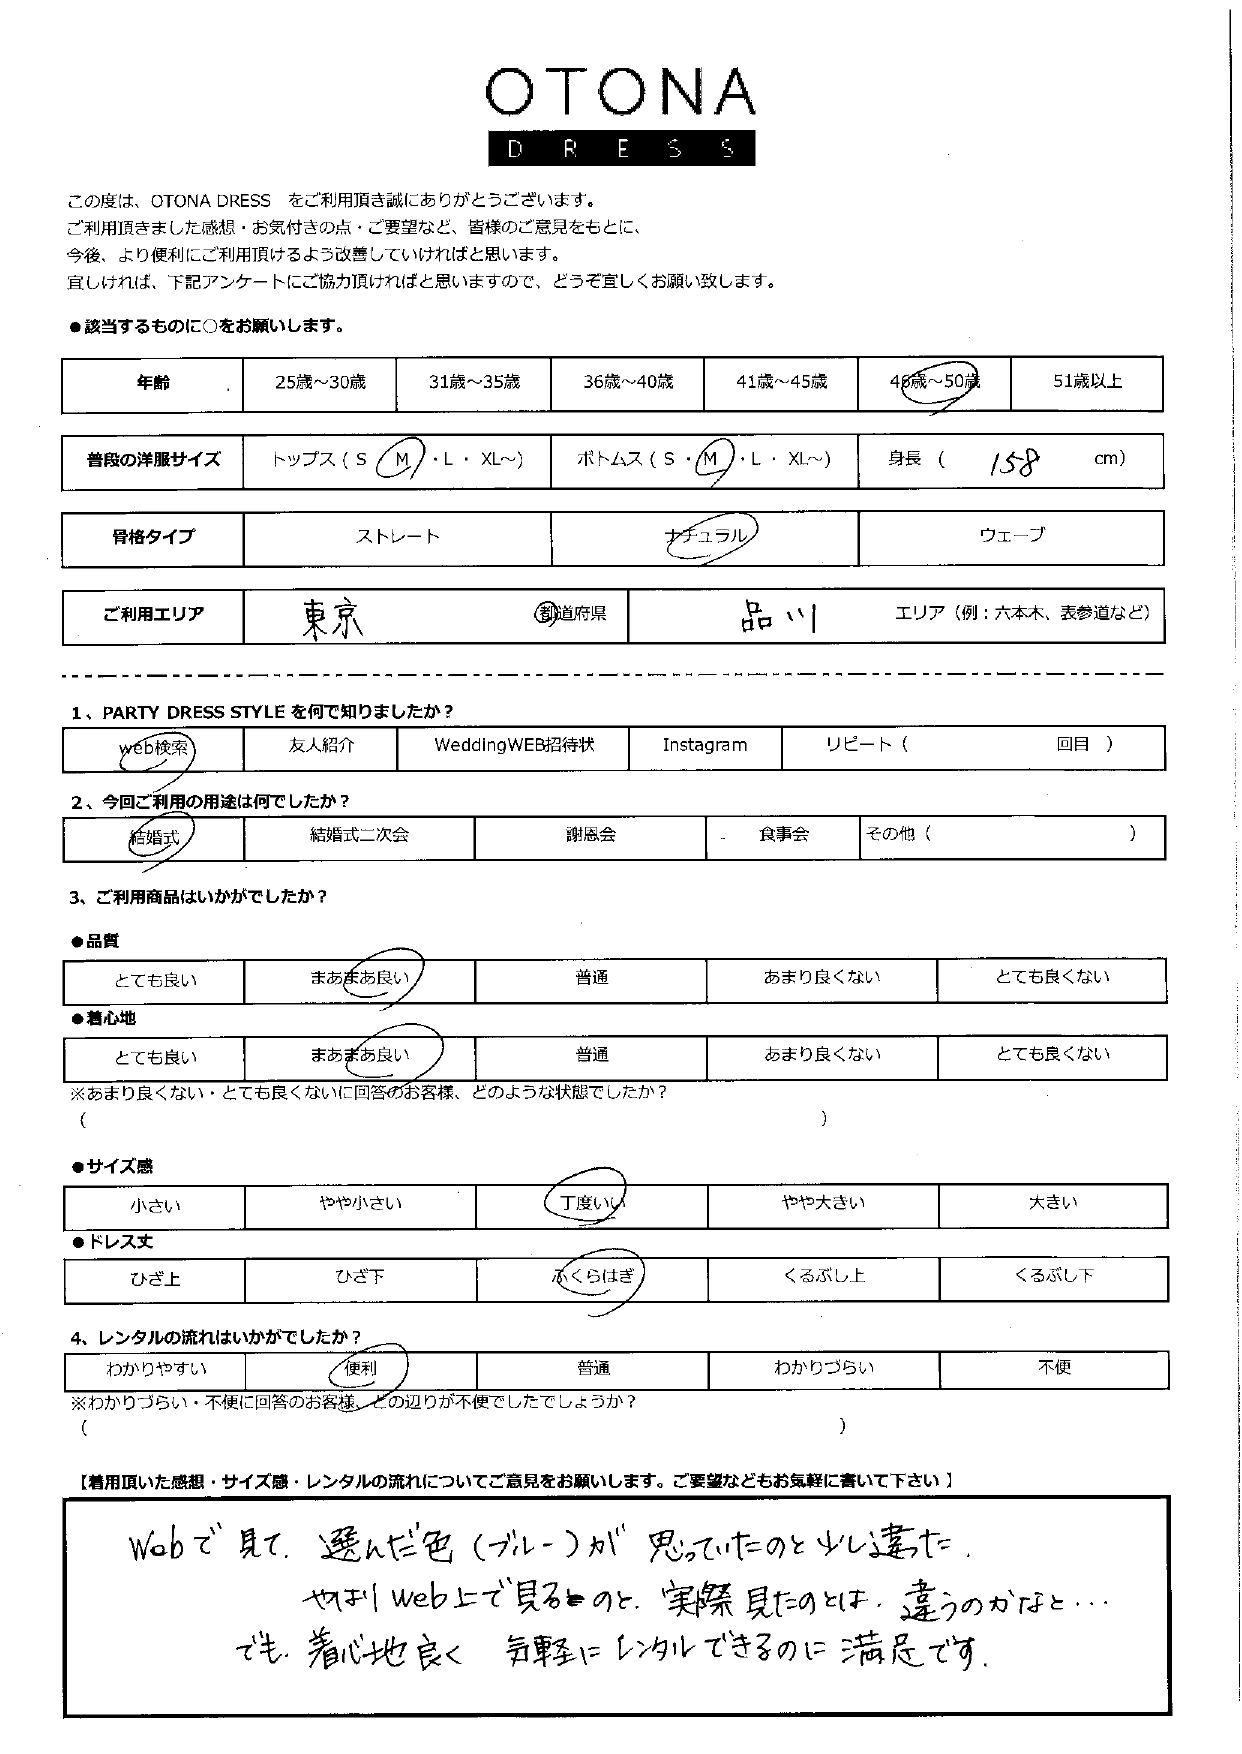 OTONA
DRESS
この度は、OTONA DRESS をご利用頂き誠にありがとうございます。
ご利用頂きました感想・お気付きの点・ご要望など、皆様のご意見をもとに、
今後、より便利にご利用頂けるよう改善していければと思います。
宜しければ、下記アンケートにご協力頂ければと思いますので、どうぞ宜しくお願い致します。
●該当するものに○をお願いします。
年齢 25歳～30歳 31歳～35歳 36歳～40歳 41歳～45歳 46歳～50歳 51歳以上
普段の洋服サイズ トップス ( S M ・L ・ XL～) ボトムス ( S ・M ・L ・ XL～) 身長 ( 158 cm)
骨格タイプ ストレート ナチュラル ウェーブ
ご利用エリア 東京 都道府県 品川 エリア（例：六本木、表参道など）
1、PARTY DRESS STYLE を何で知りましたか？
web検索 友人紹介 WeddingWEB招待状 Instagram リピート ( 回目 )
2、今回ご利用の用途は何でしたか？
結婚式 結婚式二次会 謝恩会 食事会 その他 ( )
3、ご利用商品はいかがでしたか？
●品質
とても良い まあまあ良い 普通 あまり良くない とても良くない
●着心地
とても良い まあまあ良い 普通 あまり良くない とても良くない
※あまり良くない・とても良くないに回答のお客様、どのような状態でしたか？
( )
●サイズ感
小さい やや小さい 丁度いい やや大きい 大きい
●ドレス丈
ひざ上 ひざ下 ふくらはぎ くるぶし上 くるぶし下
4、レンタルの流れはいかがでしたか？
わかりやすい 便利 普通 わかりづらい 不便
※わかりづらい・不便に回答のお客様、どの辺りが不便でしたでしょうか？
( )
【着用頂いた感想・サイズ感・レンタルの流れについてご意見をお願いします。ご要望などもお気軽に書いて下さい 】
Webで見て、選んだ色（ブルー）が 思っていたのと少し違った。
やはりweb上で見るのと、実際見たのとは、違うのかなと…
でも、着心地良く 気軽にレンタルできるのに満足です。